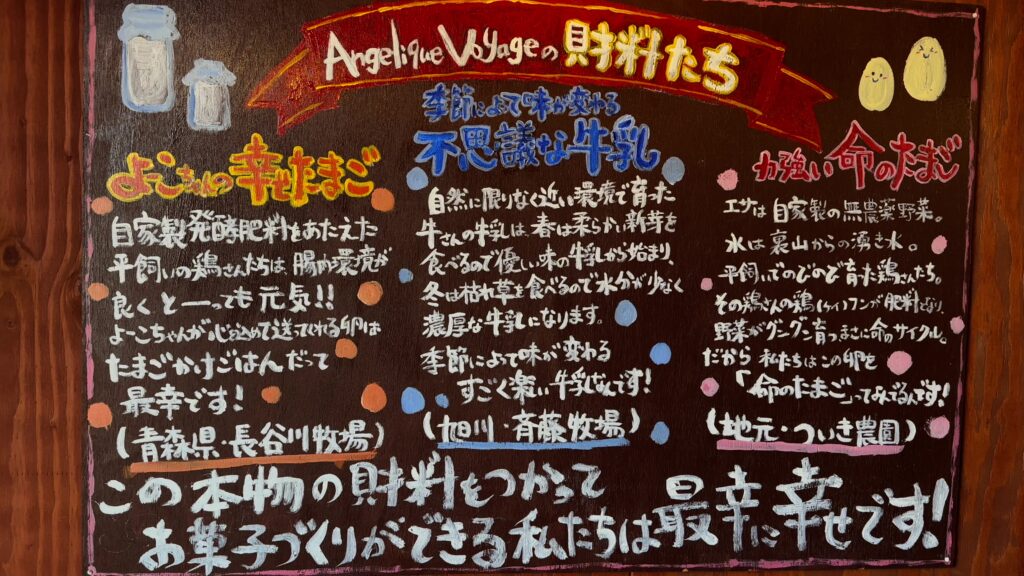 Angelique Voyageの財料たち
よーこちゃんの幸せたまご
自家製発酵肥料をあたえた
平飼いの鶏さんたちは腸内環境が
良くとーーっても元気!!
よーこちゃんが心を込めて送ってくれる卵は
たまごかけごはんだって
最幸です!
(青森県・長谷川牧場)
季節によって味が変わる
不思議な牛乳
自然に限りなく近い環境で育った
牛さんの牛乳は、春は柔らかい新芽を
食べるので優しい味の牛乳から始まり、
冬は枯れ草を食べるので水分が少なく
濃厚な牛乳になります。
季節によって味が変わる
すごく楽しい牛乳なんです!
(旭川・斉藤牧場)
力強い命のたまご
エサは自家製の無農薬野菜。
水は裏山からの湧き水。
平飼いでのびのび育った鶏さんたち。
その鶏さんの鶏フンが肥料となり、
野菜がグングン育つまさに命のサイクル。
だから私たちはこの卵を
「命のたまご」ってよんでるんです!
(地元・ついき農園)
この本物の財料をつかって
お菓子づくりができる私たちは最幸に幸せです!